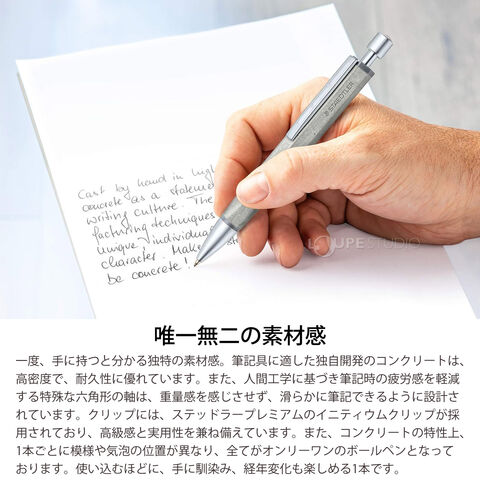 STAEDTLER
Cast by hand in high
concrete as a statement
writing culture. The
facturing techniques
unique, individual
character. Make
be concrete!
LOUPE STUDIO
唯一無二の素材感
一度、手に持つと分かる独特の素材感。筆記具に適した独自開発のコンクリートは、
高密度で、耐久性に優れています。また、人間工学に基づき筆記時の疲労感を軽減
する特殊な六角形の軸は、重量感を感じせず、滑らかに筆記できるように設計さ
れています。クリップには、ステッドラープレミアムのイニティウムクリップが採
用されており、高級感と実用性を兼ね備えています。また、コンクリートの特性上、
1本ごとに模様や気泡の位置が異なり、全てがオンリーワンのボールペンとなって
おります。使い込むほどに、手に馴染み、経年変化も楽しめる1本です。